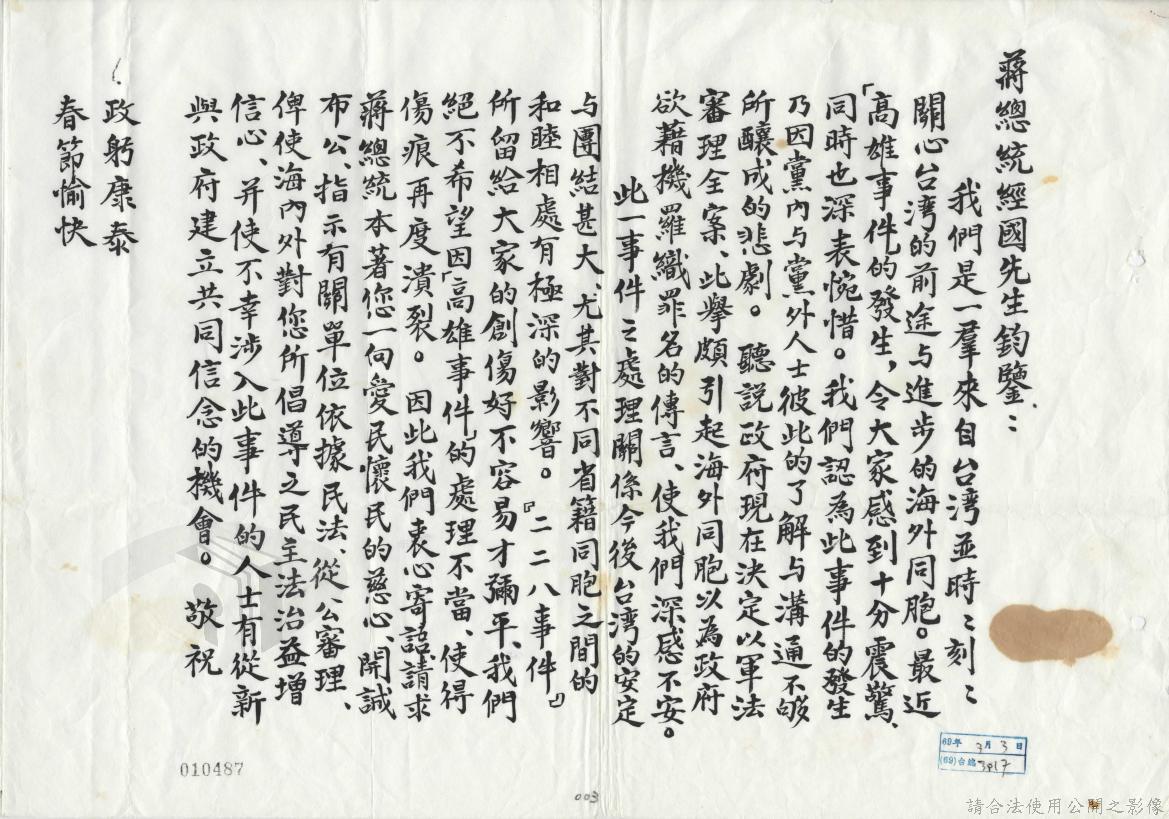 蔣總統經國先生鈞鑒：
我們是一羣來自台湾並時〻刻〻
關心台湾的前途与進步的海外同胞。最近
「高雄事件的發生，令大家感到十分震驚、
同時也深表惋惜。我們認為此事件的發生
乃因黨內与黨外人士彼此的了解与溝通不够
所釀成的悲劇。聽説政府現在決定以軍法
審理全案、此舉頗引起海外同胞以為政府
欲藉機羅織罪名的傳言、使我們深感不安。
此一事件之處理關係今後台湾的安定
与團結甚大、尤其對不同省籍同胞之間的
和睦相處有極深的影響。『二二八事件』
所留給大家的創傷好不容易才彌平、我們
絕不希望因「高雄事件」的處理不當、使得
傷痕再度潰裂。因此我們衷心寄語請求
蔣總統本著您一向愛民懷民的慈心、開誠
布公、指示有關單位依據民法、從公審理、
俾使海內外對您所倡導之民主法治益增
信心、并使不幸涉入此事件的人士有從新
與政府建立共同信念的機會。敬祝
政躬康泰
春節愉快
69年3月3日
(69)台總3817
010487
003
請合法使用公開之影像